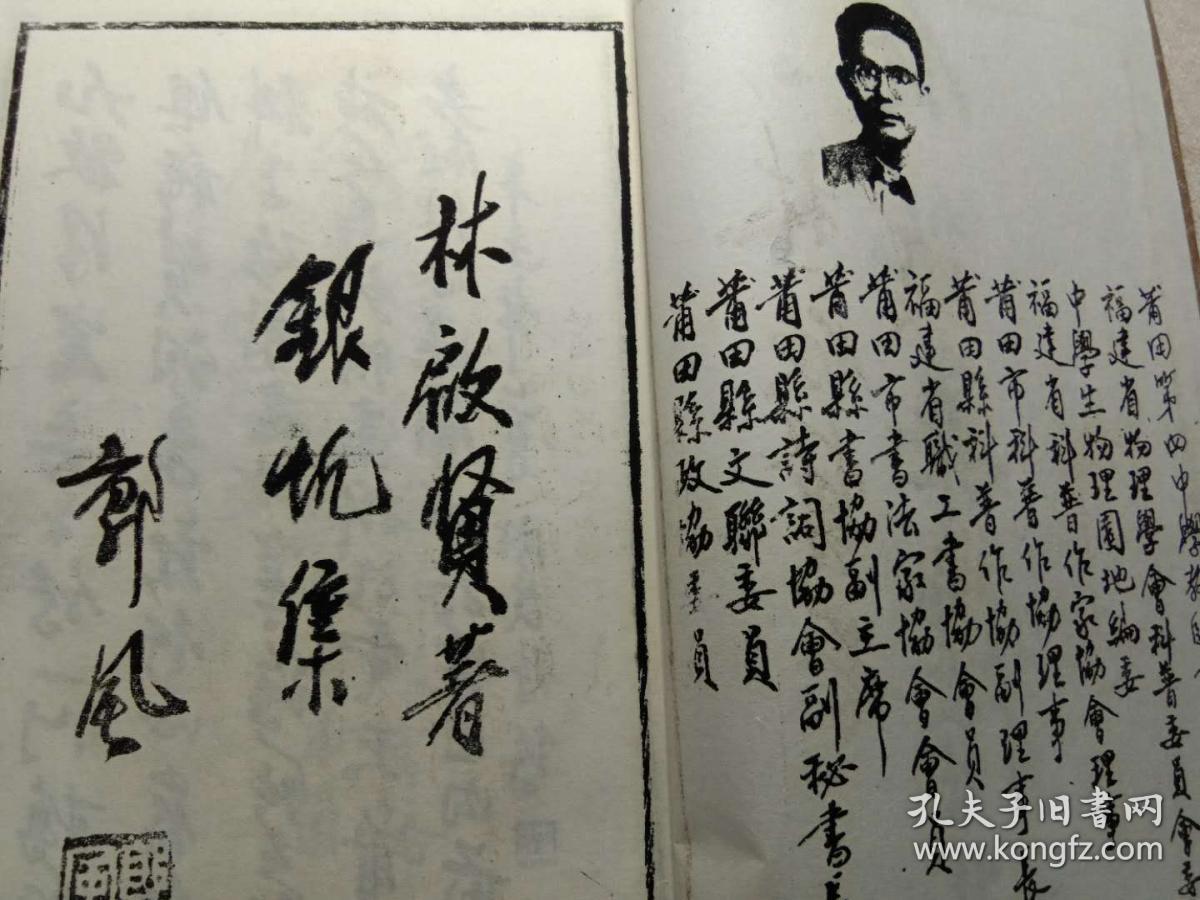 林啟贤著
銀忱集
郭风
莆田第四中學
福建省物理學會科普委員會委
中學生物理園地編委
福建省科普作家協會理事
莆田市科普作協理事
莆田縣科普作協副理事長
福建省職工書協會員
莆田市書法家協會會員
莆田縣書協副主席
莆田縣詩詞協會副秘書長
莆田縣文聯委員
莆田縣政協委員
孔夫子旧书网
www.kongfz.com